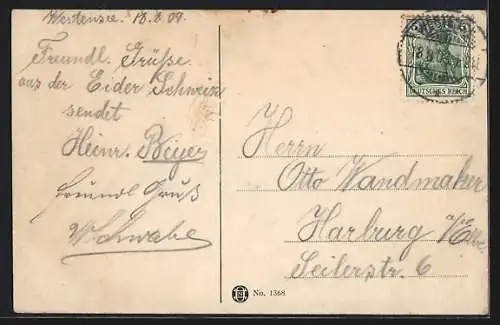 Westensee. 18.8.09.
Freundl. Grüße
aus der Eider Schweiz
sendet
Heinr. Beyer
freundl Gruß
W. Schwabe
Herrn
Otto Wandmaker
Harburg a/Elbe
Seilerstr. 6
DEUTSCHES REICH
No. 1368